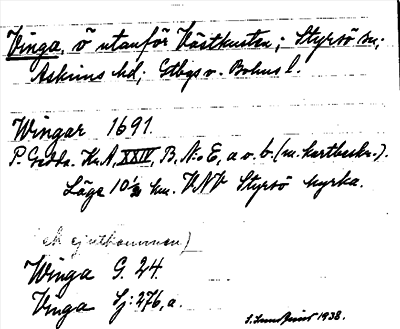 Vinga, ö utanför Västkusten; Styrsö sn;
Askims hd; Gtbgs o. Bohus l.
Wingar 1691.
P. Gedda. Kr.A, XXIV, B, No E, a o. b. (m. kartbeskr.).
Läge 10½ km. VNV Styrsö kyrka.
(ej utkommen)
Winga G. 24.
Vinga Sj: 276, a.
1938.